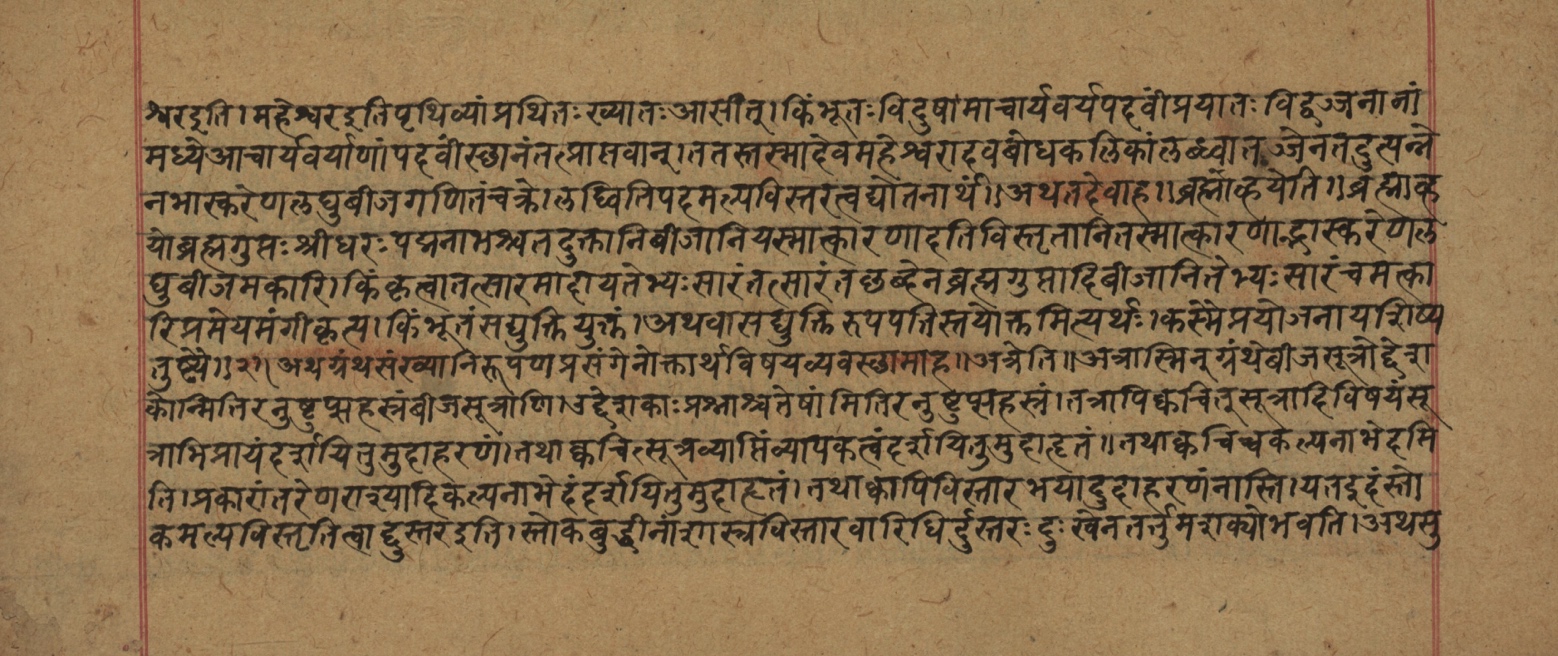 श्वरइति। महेश्वरइतिपृथिव्यांप्रथितःख्यातःआसीत्। किंभूतःविदुषामाचार्यवर्यपदवींप्रयातः विद्वज्जनानां
मध्येआचार्यवर्याणांपदवींस्छानंतत्प्राप्तवान्। ततस्तस्मादेवमहेश्वरादवबोधकलिकांलब्ध्वातज्जेनतदुत्पन्ने
नभास्करेणलघुबीजगणितंचक्रे। लघ्वितिपदमल्पविस्तरत्वद्योतनार्थं।। अथतदेवाह।। ब्रह्माव्हयेति।। ब्रह्माव्ह
योब्रह्मगुप्तःश्रीधरःपद्मनाभश्चतदुक्तानिबीजानियस्मात्कारणादतिविस्तृतानितस्मात्कारणाद्भास्करेणल
घुबीजमकारि। किंकृत्वातत्सारमादायतेभ्यःसारंतत्सारंतछब्देनब्रह्मगुप्तादिबीजानितेभ्यःसारंचमत्का
रिप्रमेयमंगीकृत्य। किंभूतंसद्युक्तियुक्तं। अथवासद्युक्तिरुपपत्तिस्तयोक्तमित्यर्थः। कस्मैप्रयोजनायशिष्य
तुष्ट्यै।। २।। अथग्रंथसंख्यानिरूपणप्रसंगेनोक्तार्थविषयव्यवस्छामाह।। अत्रेति।। अत्रास्मिन्ग्रंथेबीजसूत्रोद्देशा
कोन्मितिरनुष्टुप्सहस्रंबीजसूत्राणि। उद्देशकाःप्रश्नाश्चतेषांमितिरनुष्टुप्सहस्रं। तत्रापिक्वचित्सूत्रादिविषयंसू
त्राभिप्रायंदर्शयितुमुदाहरणं। तथाक्वचित्सूत्रव्याप्तिंव्यापकत्वंदर्शयितुमुदाहृतं।। तथाक्वचिच्चकल्पनाभेदमि
ति। प्रकारांतरेणराश्यादिकल्पनाभेदंदर्शयितुमुदाहृतं। तथाक्वापिविस्तारभयादुदाहरणंनास्ति। यतइदंस्तो
कमल्पविस्तृतित्वाद्दुस्तरइति। स्तोकबुद्धीनांशास्त्रविस्तारवारिधिर्दुस्तरःदुःखेनतर्तुमशक्योभवति। अथसु